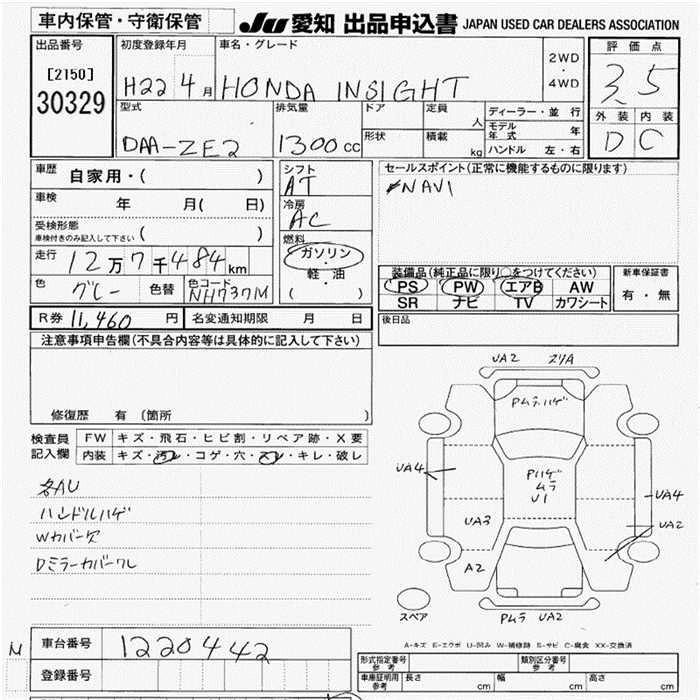 車内保管・守衛保管 JU 愛知 出品申込書 JAPAN USED CAR DEALERS ASSOCIATION
出品番号 初度登録年月 車名・グレード 2WD・4WD 評価点
[2150] H22 4月 HONDA INSIGHT 3.5
30329
型式 排気量 ドア 定員 人 ディーラー・並行 外装 内装
DAA-ZE2 1300cc 形状 積載 kg モデル年式 年 D C
ハンドル 左・右
車歴 自家用・( ) シフト セールスポイント(正常に機能するものに限ります)
AT NAVI
車検 年 月( 日) 冷房
AC
受検形態 ( )
車検付きのみ記入して下さい
燃料
走行 12万7千484km ガソリン 装備品(純正品に限り○をつけてください) 新車保証書
軽・油 PS PW エアB AW 有・無
色 グレー 色替 色コード NH737M ( ) SR ナビ TV カワシート
R券 11,460円 名変通知期限 月 日 後日品
注意事項申告欄(不具合内容等は具体的に記入して下さい)
修復歴 有(箇所 )
検査員 FW キズ・飛石・ヒビ割・リペア跡・X要
記入欄 内装 キズ・汚レ・コゲ・穴・スレ・キレ・破レ
各AU
ハンドルハゲ
Wカバー欠
Dミラーカバーワレ
UA2 スリA
Pムラハゲ
UA4
Pハゲ
ムラ
U1
UA4
UA3
UA2
A2
スペア Pムラ UA2
A-キズ E-エクボ U-凹み W-補修跡 S-サビ C-腐食 XX-交換済
M 車台番号 1220442
登録番号
形式指定番号 参考 類別区分番号 参考
車庫証明用 参考 長さ cm 幅 cm 高さ cm